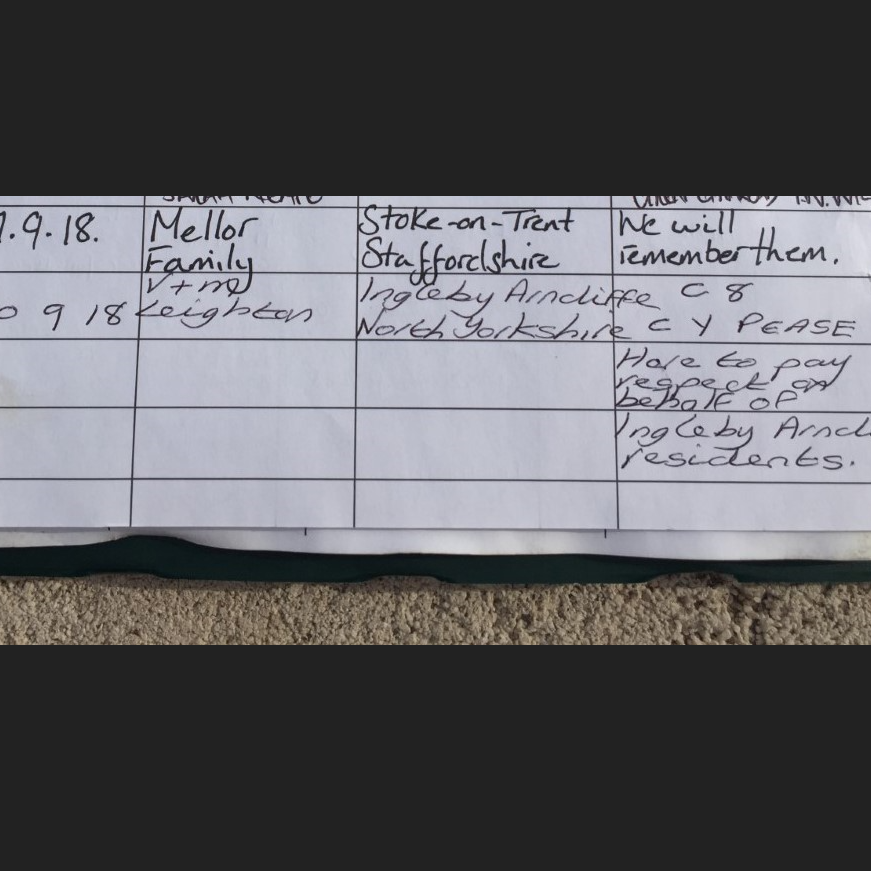 .9.18.
Mellor
Family
Stoke-on-Trent
Staffordshire
We will
remember them.
9 18
V + M
Leighton
Ingleby Arncliffe
North Yorkshire
C 8
C Y PEASE
Here to pay
respect on
behalf of
Ingleby Arncl
residents.